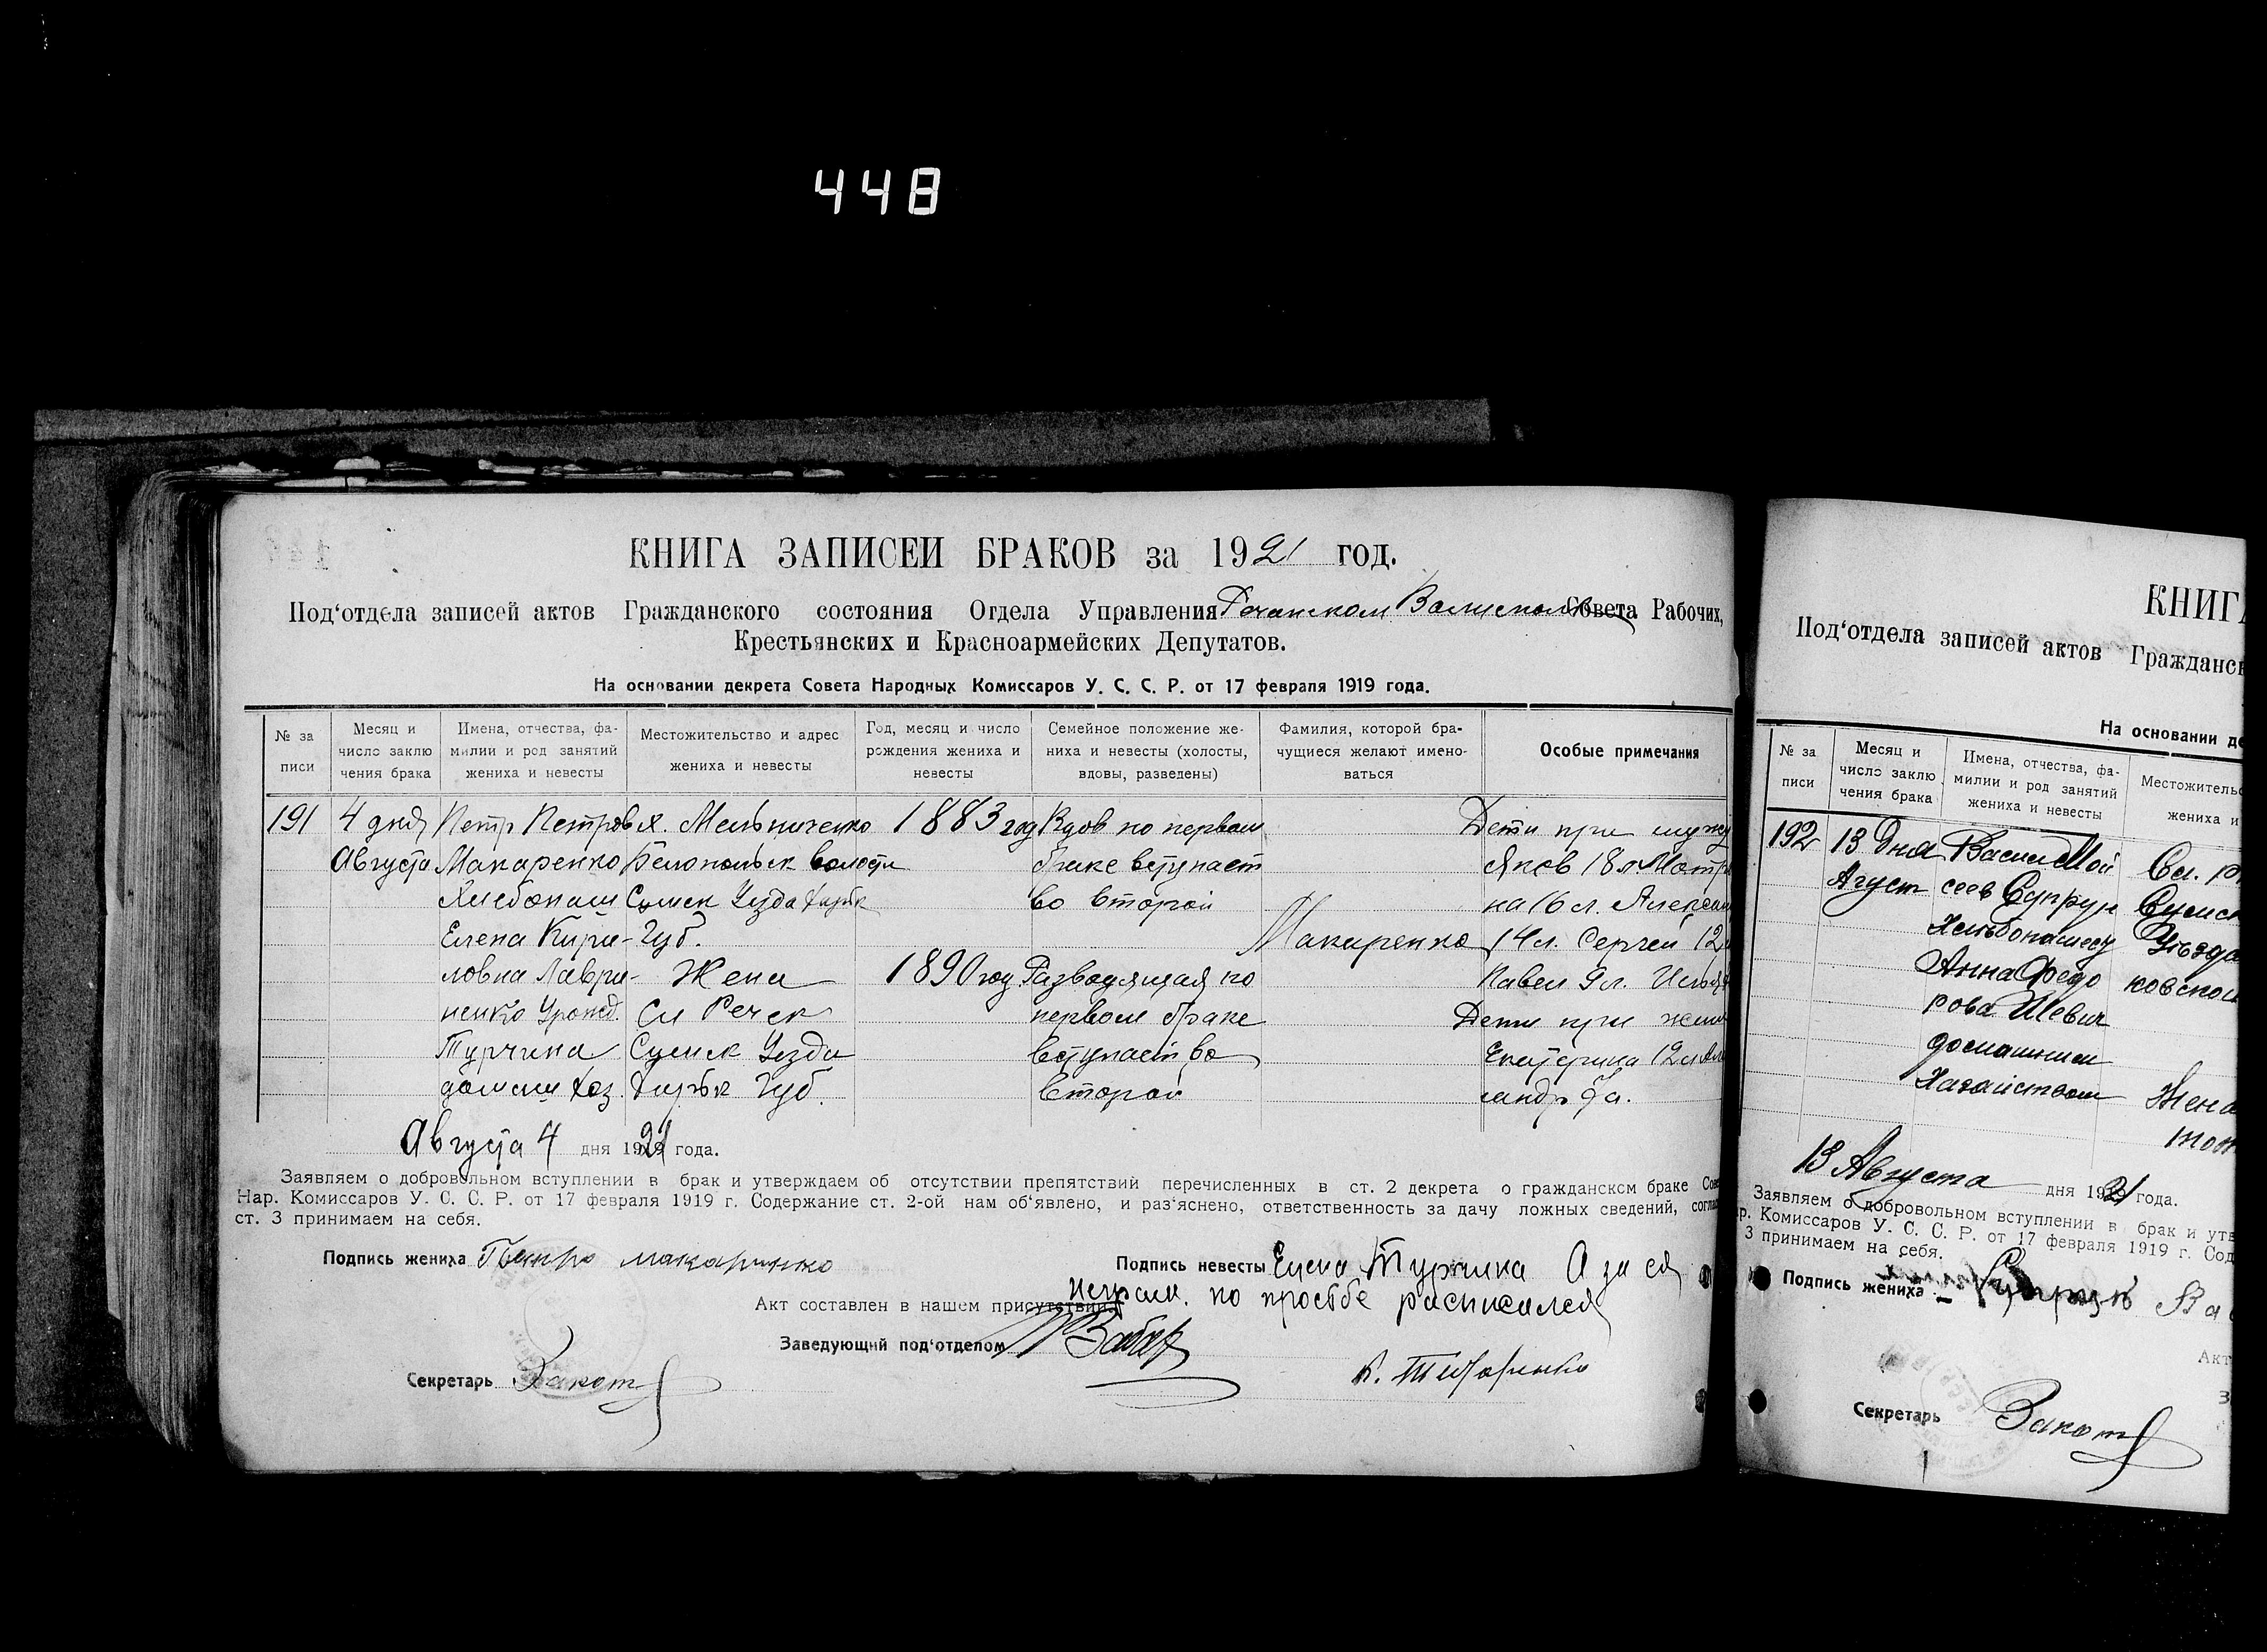 448
КНИГА ЗАПИСЕЙ БРАКОВ за 1921 год.
Под‘отдела записей актов Гражданского состояния Отдела Управления Совета Рабочих,
Крестьянских и Красноармейских Депутатов.
На основании декрета Совета Народных Комиссаров У. С. С. Р. от 17 февраля 1919 года.
№ за
писи
Месяц и
число заклю
чения брака
Имена, отчества, фа-
милии и род занятий
жениха и невесты
Местожительство и адрес
жениха и невесты
Год, месяц и число
рождения жениха и
невесты
Семейное положение же-
ниха и невесты (холосты,
вдовы, разведены)
Фамилия, которой бра-
чущиеся желают имено-
ваться
Особые примечания
191
4 дня
Августа
Петр Петров
Макаренко
Хлебопаш
Елена Кири-
ловна Лаври-
ненко Урожд.
Турчина
домаш хоз.
х. Мельниченко
Белопольск волости
Сумск Уезда Харьк
Губ.
Жена
Сл Речек
Сумск Уезда
Харьк Губ.
1883 год
1890 год
Вдов по первом
браке вступает
во второй
Разводящая по
первом браке
вступает во
второй
Макаренко
Дети при муж
Яков 18 л. Матр
на 16 л. Алексан
14 л. Сергей 12
Павел 9 л. Илья
Дети при жен
Екатерина 12 л Але
сандр 9 л.
Августа 4 дня 1921 года.
Заявляем о добровольном вступлении в брак и утверждаем об отсутствии препятствий перечисленных в ст. 2 декрета о гражданском браке Сове
Нар. Комиссаров У. С. С. Р. от 17 февраля 1919 г. Содержание ст. 2-ой нам об‘явлено, и раз‘яснено, ответственность за дачу ложных сведений, соглас
ст. 3 принимаем на себя.
Подпись жениха Петро макаринко
Подпись невесты Елена Турчина А за ея
Неграм. по просьбе расписался
Акт составлен в нашем присутствии:
Заведующий под‘отделом
Секретарь
КНИГА
Под‘отдела записей актов Гражданск
На основании де
№ за
писи
Месяц и
число заклю
чения брака
Имена, отчества, фа-
милии и род занятий
жениха и невесты
Местожительс
жениха и
192
13 дня
Агуст
Васил Мой
сеев Супрун
Анна Федо
рова Шевч
домашнем
Хазайством
Сл.
Сумск
Уезда
Жена
13 Августа дня 1921 года.
Заявляем о добровольном вступлении в брак и утв
р. Комиссаров У. С. С. Р. от 17 февраля 1919 г. Сод
3 принимаем на себя.
Подпись жениха Супрун Ва
Акт
З
Секретарь